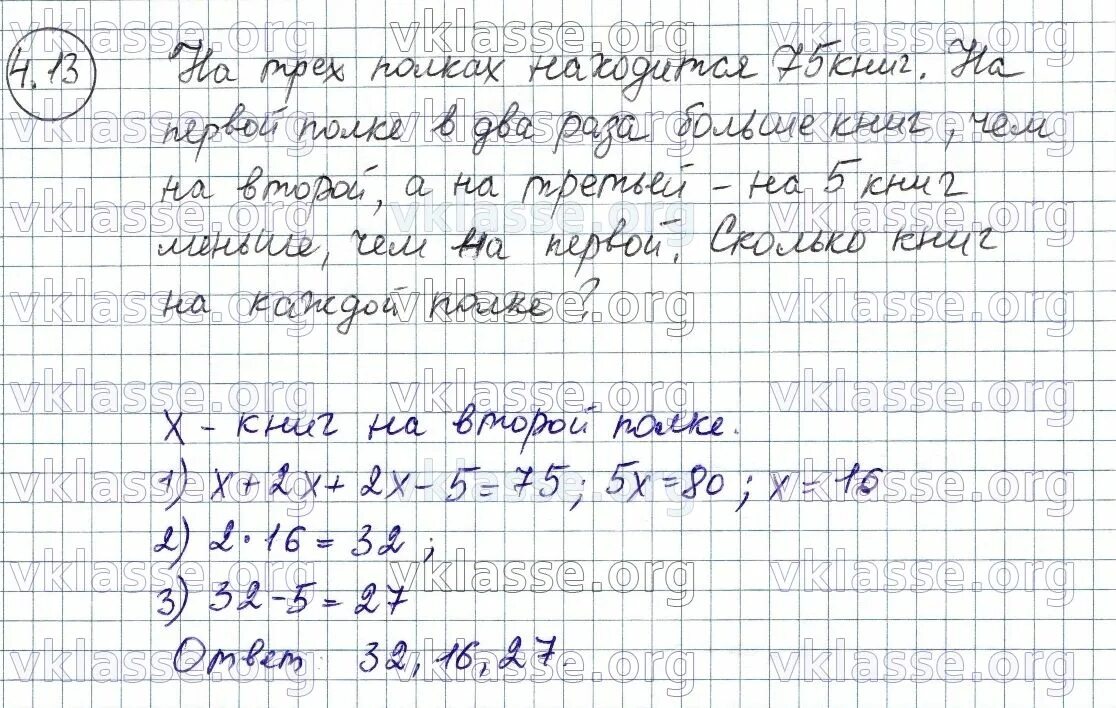 4.13
На трех полках находится 75 книг. На
первой полке в два раза больше книг, чем
на второй, а на третьей – на 5 книг
меньше, чем на первой. Сколько книг
на каждой полке?
х – книг на второй полке.
1) х + 2х + 2х – 5 = 75; 5х = 80; х = 16
2) 2 · 16 = 32;
3) 32 – 5 = 27
Ответ: 32, 16, 27.
vklasse.org